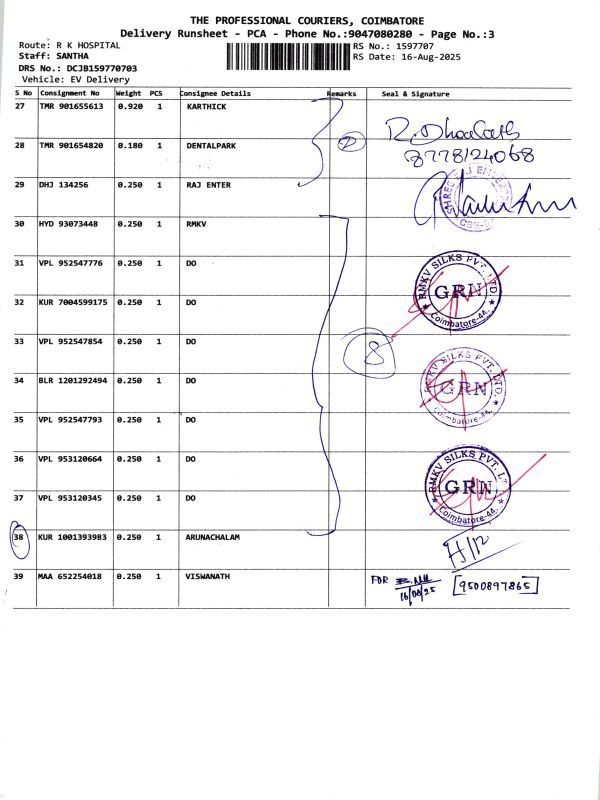 THE PROFESSIONAL COURIERS, COIMBATORE
Delivery Runsheet - PCA - Phone No.:9047080280 - Page No.:3
Route: R K HOSPITAL
Staff: SANTHA
DRS No.: DCJB159770703
Vehicle: EV Delivery
RS No.: 1597707
RS Date: 16-Aug-2025
S No Consignment No Weight PCS Consignee Details Remarks Seal & Signature
27 TMR 901655613 0.920 1 KARTHICK
28 TMR 901654820 0.180 1 DENTALPARK
2
8778124068
29 DHJ 134256 0.250 1 RAJ ENTER
30 HYD 93073448 0.250 1 RMKV
31 VPL 952547776 0.250 1 DO
RMKV SILKS PVT. LTD.
GRN
Coimbatore-44.
32 KUR 7004599175 0.250 1 DO
33 VPL 952547854 0.250 1 DO
8
34 BLR 1201292494 0.250 1 DO
RMKV SILKS PVT. LTD.
GRN
Coimbatore-44.
35 VPL 952547793 0.250 1 DO
36 VPL 953120664 0.250 1 DO
RMKV SILKS PVT. LT
GRN
Coimbatore-44.
37 VPL 953120345 0.250 1 DO
38 KUR 1001393983 0.250 1 ARUNACHALAM
39 MAA 652254018 0.250 1 VISWANATH
FOR
16/08/25
9500897865